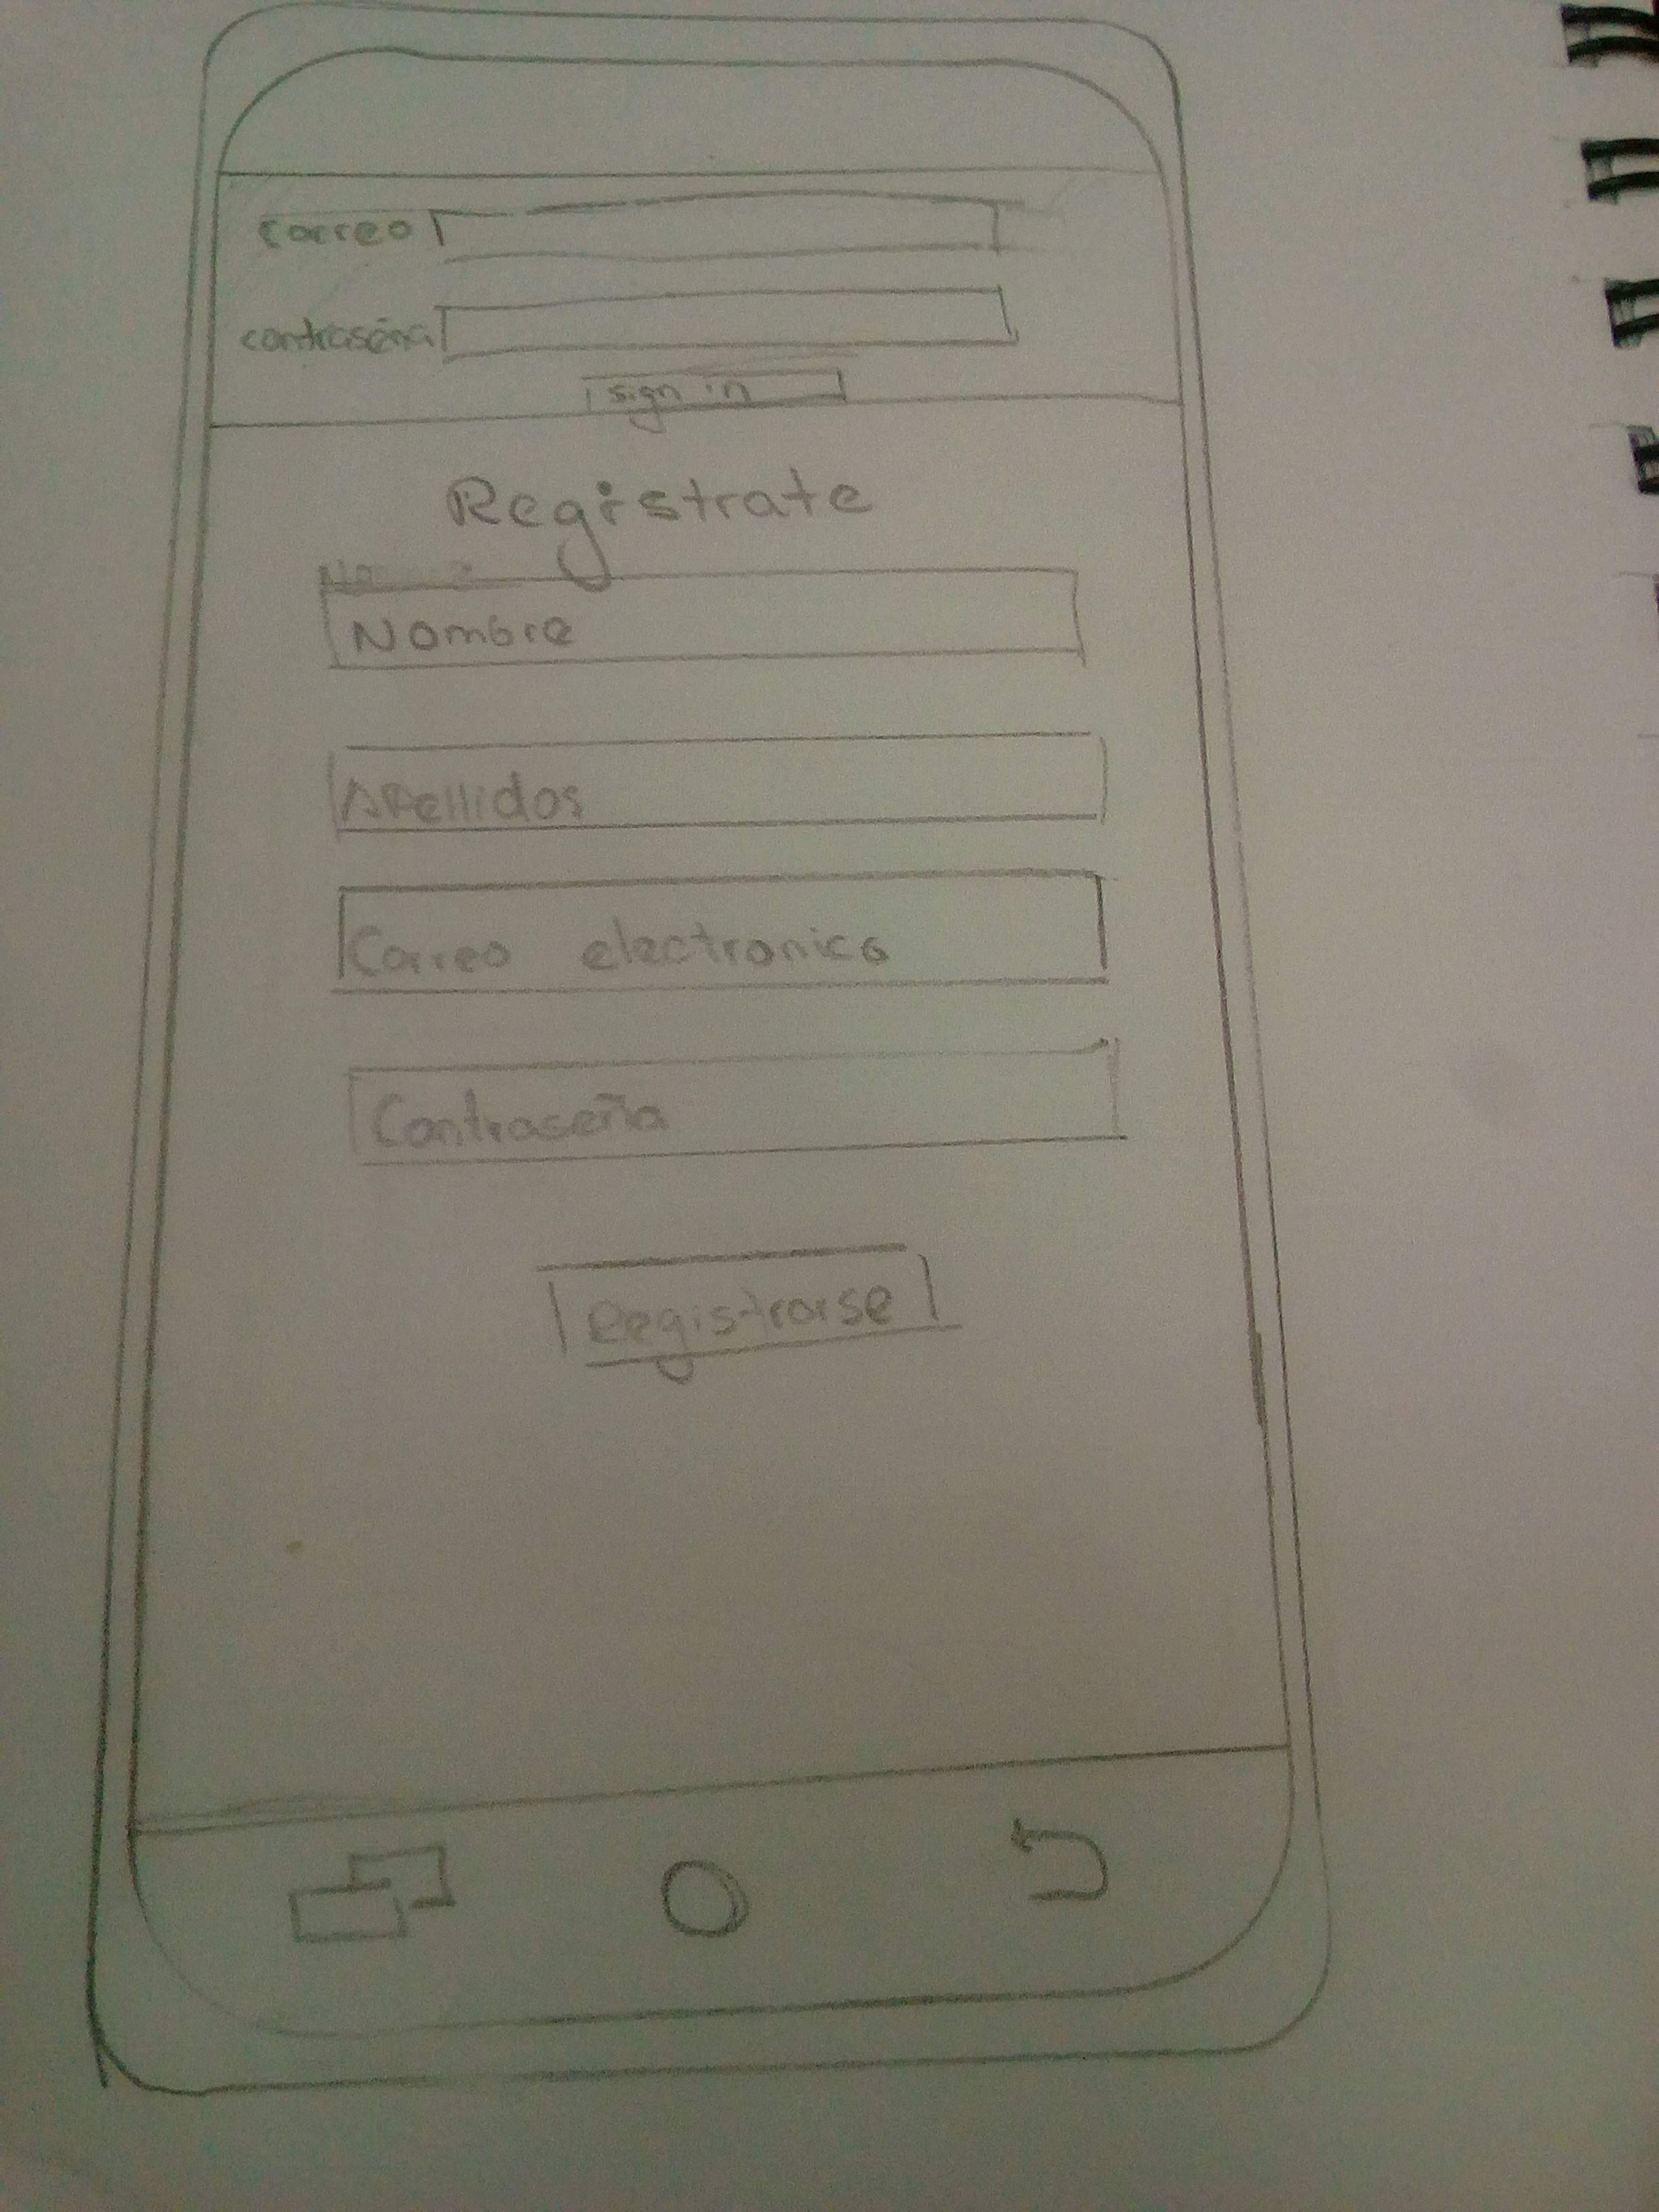 correo
contraseña
sign in
Registrate
Nombre
Apellidos
Correo electronico
Contraseña
Registrarse